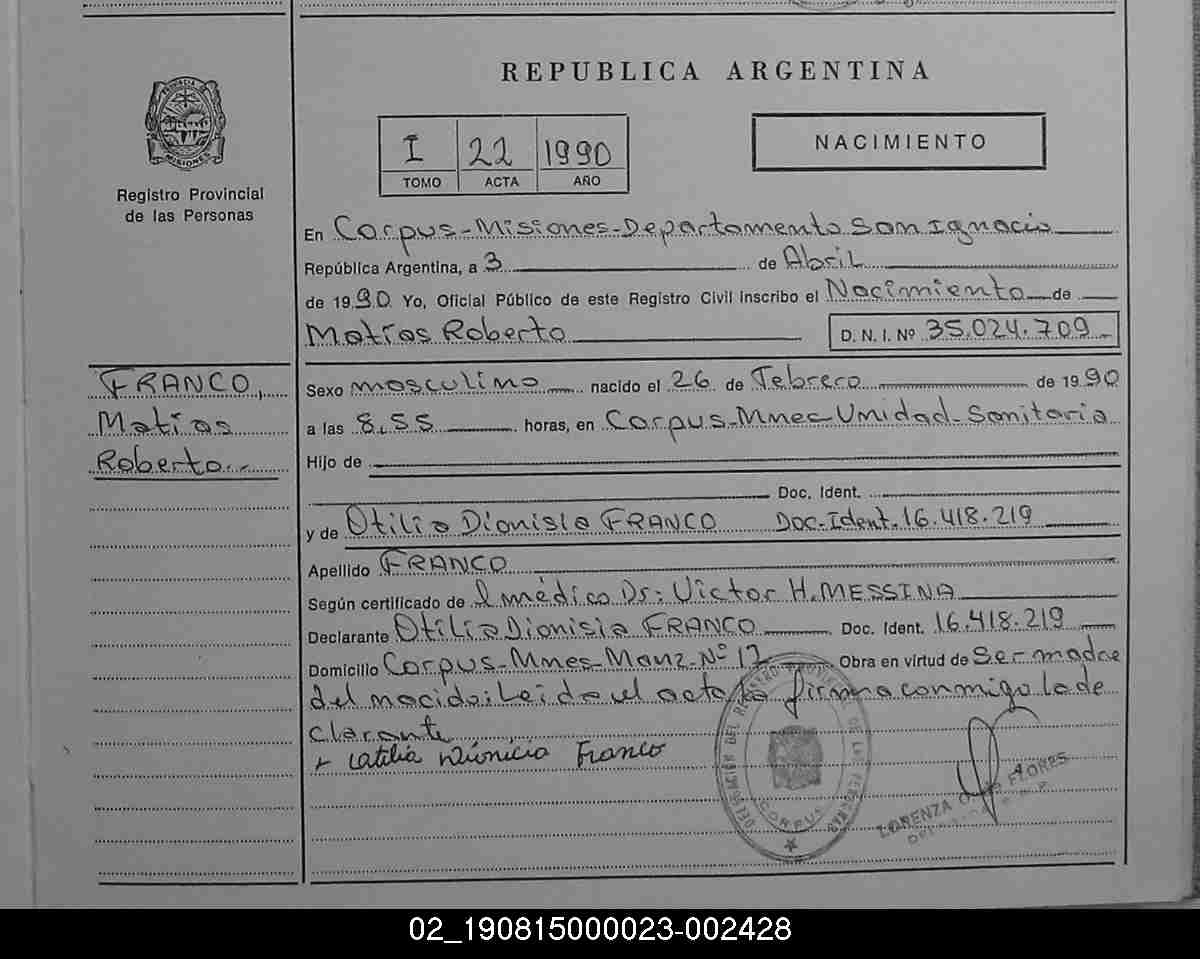 REPUBLICA ARGENTINA
PROVINCIA DE MISIONES
Registro Provincial
de las Personas
I 22 1990
TOMO ACTA AÑO
NACIMIENTO
En Corpus-Misiones-Departamento San Ignacio
República Argentina, a 3 de Abril
de 1990 Yo, Oficial Público de este Registro Civil inscribo el Nacimiento de
Matías Roberto D. N. I. Nº 35.024.709
FRANCO,
Matías
Roberto.-
Sexo masculino nacido el 26 de Febrero de 1990
a las 8,55 horas, en Corpus-Mnes-Unidad-Sanitaria
Hijo de
Doc. Ident.
y de Otilia Dionisia FRANCO Doc-Ident. 16.418.219
Apellido FRANCO
Según certificado de l médico Dr: Victor H. MESSINA
Declarante Otilia Dionisia FRANCO Doc. Ident. 16.418.219
Domicilio Corpus-Mnes-Manz-Nº 17 Obra en virtud de Ser madre
del nacido: Leida el acta la firma conmigo la de
clarante
Dionicia Franco
DELEGACIÓN DEL REGISTRO PROVINCIAL DE LAS PERSONAS
CORPUS
LORENZA FLORES
02_190815000023-002428